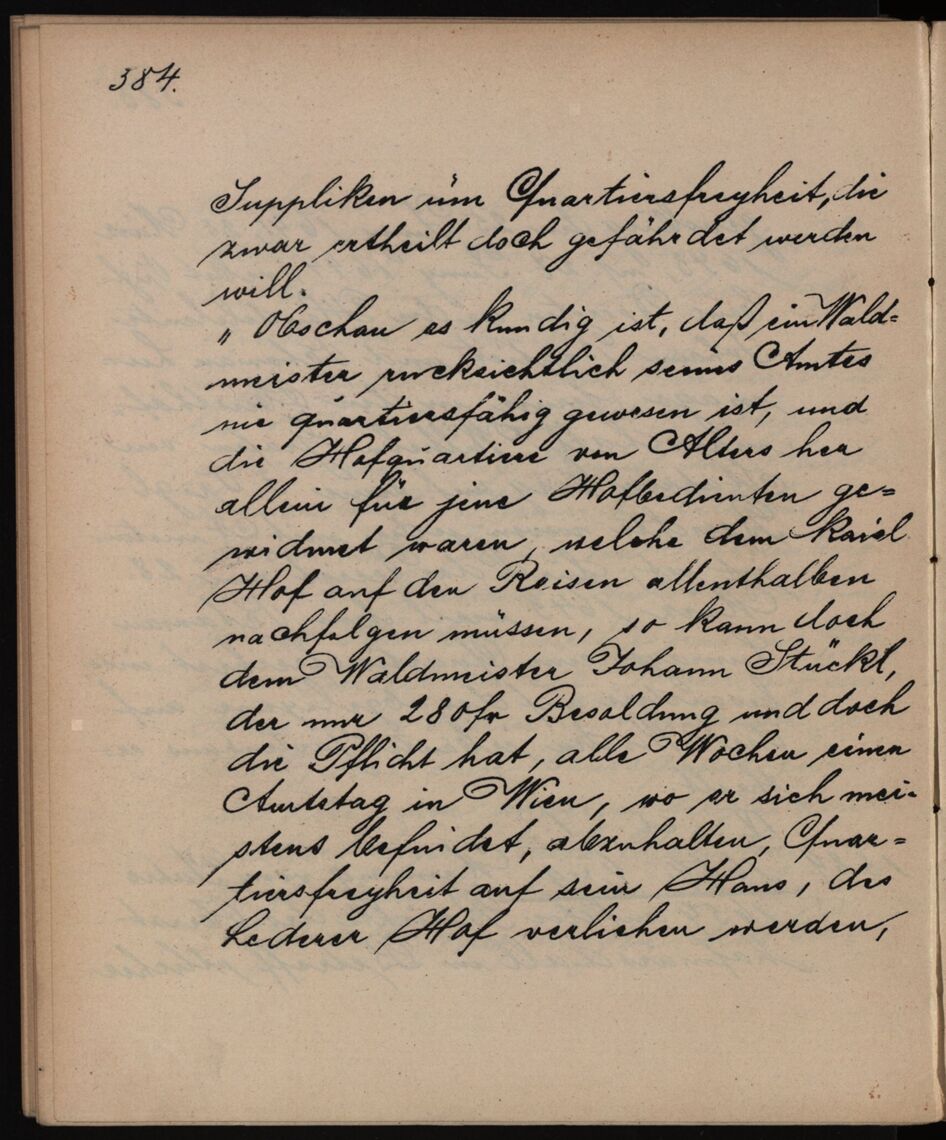 384.
Suppliken üm Quartiersfreyheit, die
zwar ertheilt doch gefährdet werden
will.
„ Obschon es kundig ist, daß ein Wald=
meister rucksichtlich seines Amtes
nie quartiersfähig gewesen ist, und
die Hofquartiere von Alters her
allein für jene Hofbedienten ge=
widmet waren, welche dem kaisl
Hof auf den Reisen allenthalben
nachfolgen müssen, so kann doch
dem Waldmeister Johann Stückl,
der nur 280 fr Besoldung und doch
die Pflicht hat, alle Wochen einen
Amtstag in Wien, wo er sich mei=
stens befindet, abzuhalten, Quar=
tiersfreyheit auf sein Haus, des
Lederer Hof verliehen werden,